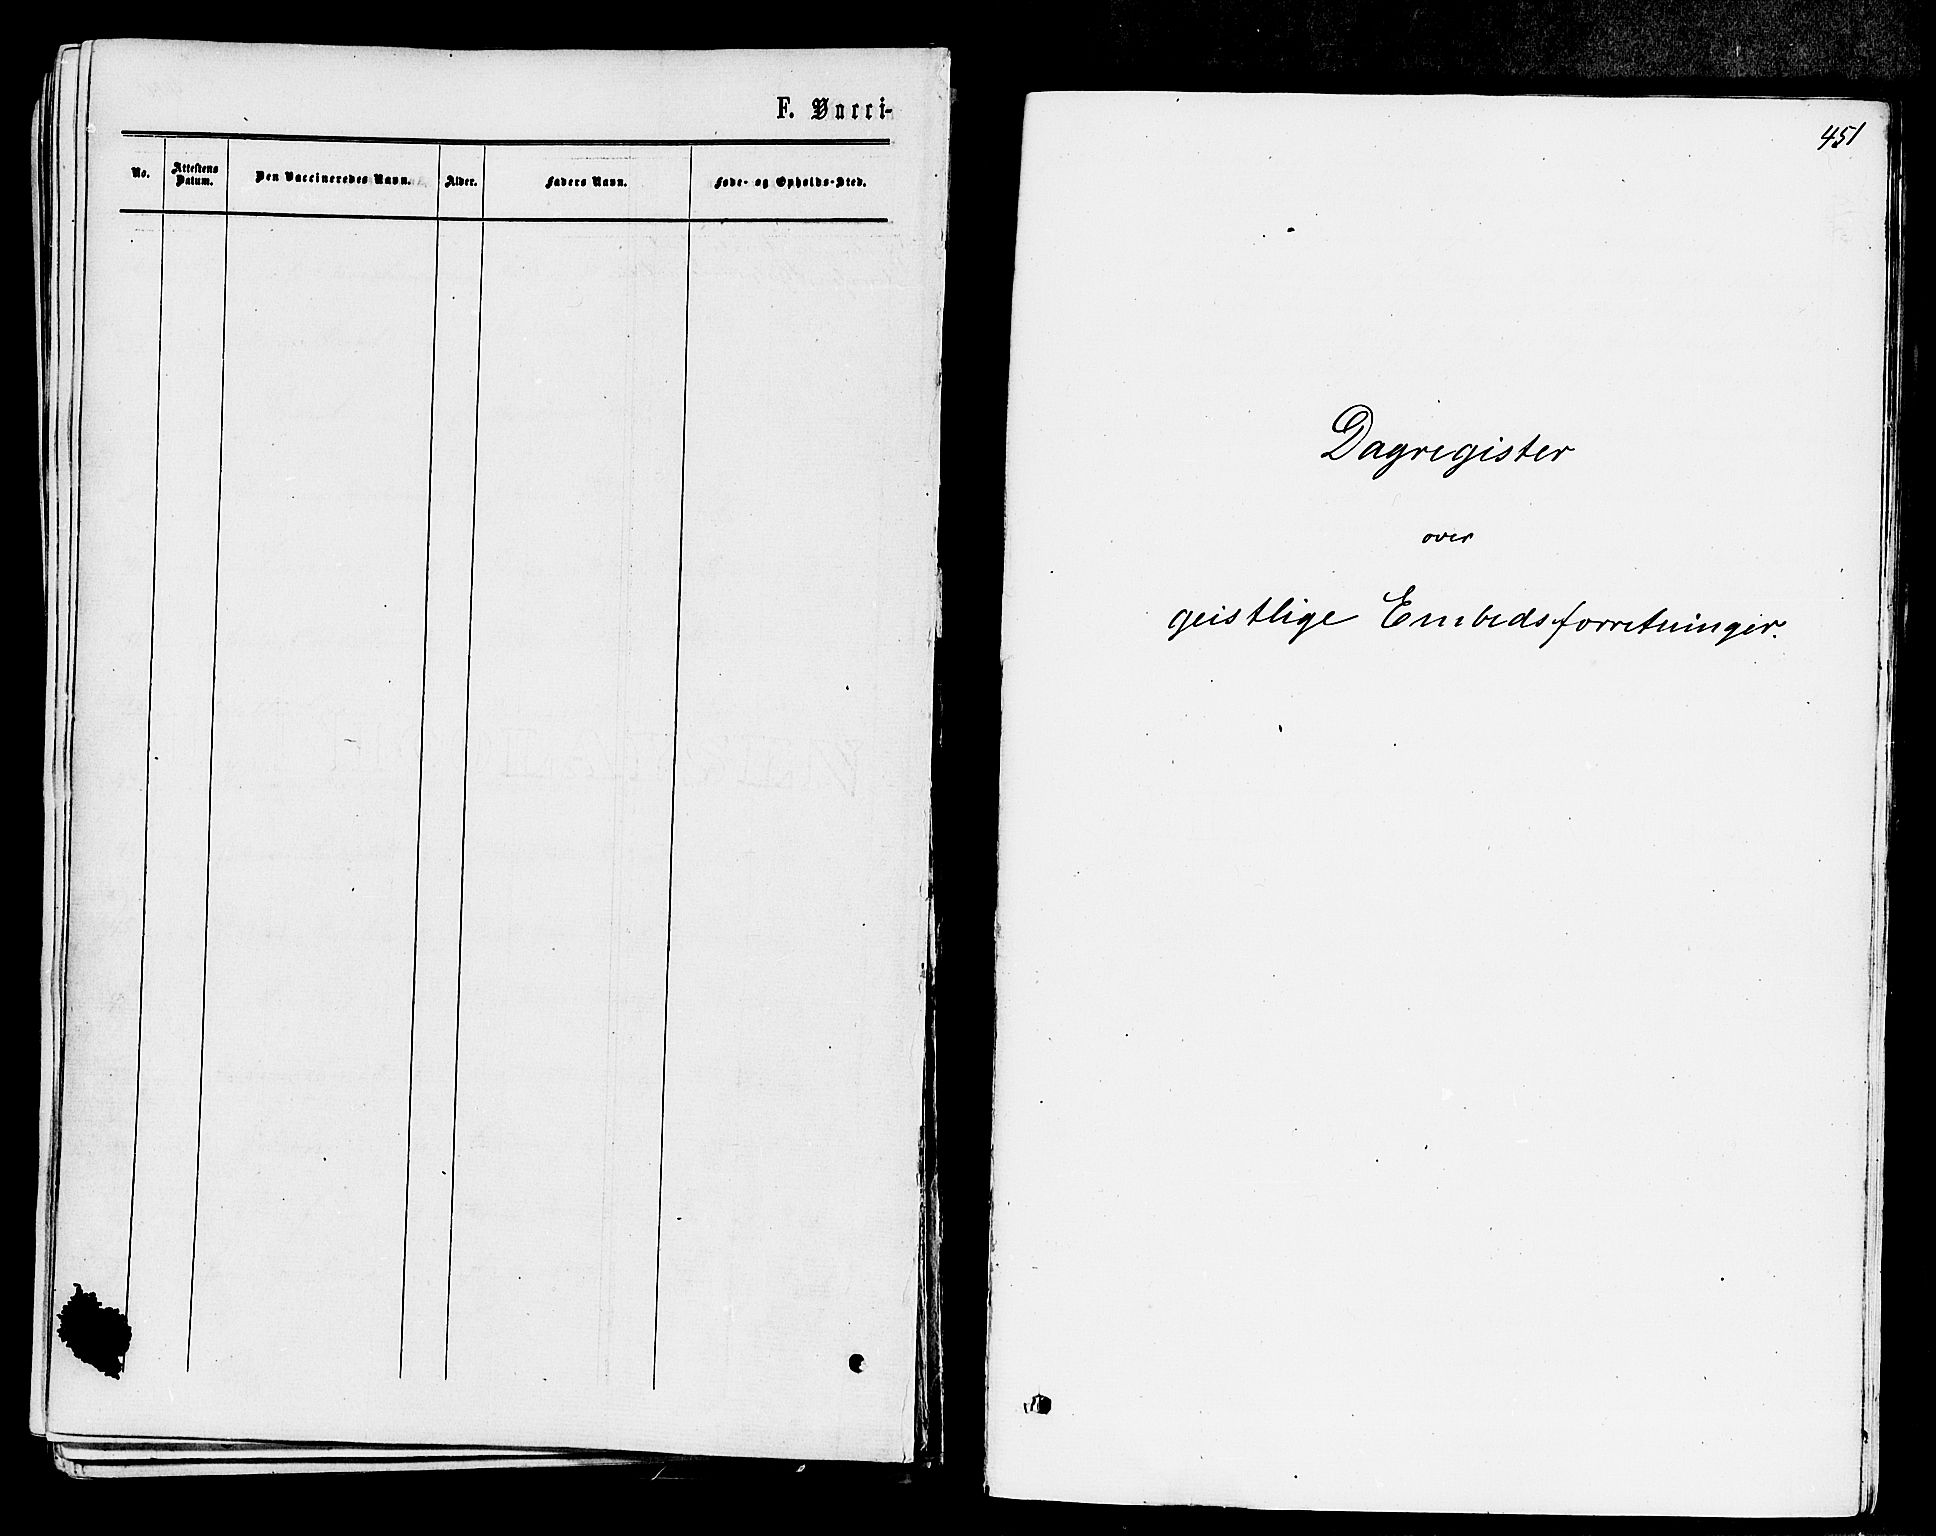 F. Vacci-
No. Attestens Datum. Den Vaccineredes Navn. Alder. Faders Navn. Føde- og Opholds-Sted.
451
Dagregister
over
geistlige Embedsforretninger.